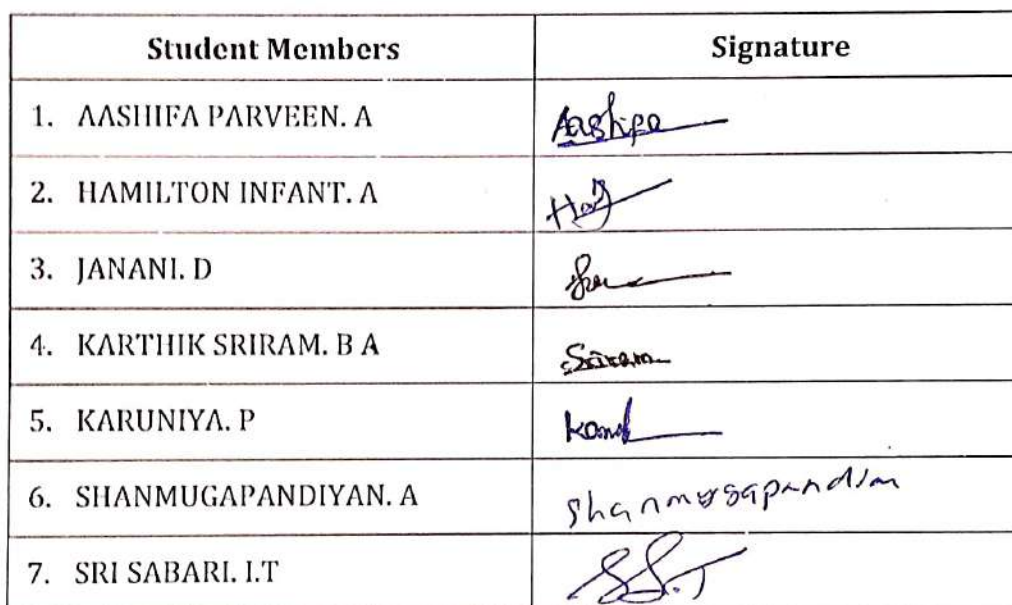 Student Members Signature
1. AASHIFA PARVEEN. A Aashifa
2. HAMILTON INFANT. A
3. JANANI. D
4. KARTHIK SRIRAM. B A Sriram
5. KARUNIYA. P
6. SHANMUGAPANDIYAN. A Shanmugapandian
7. SRI SABARI. I.T